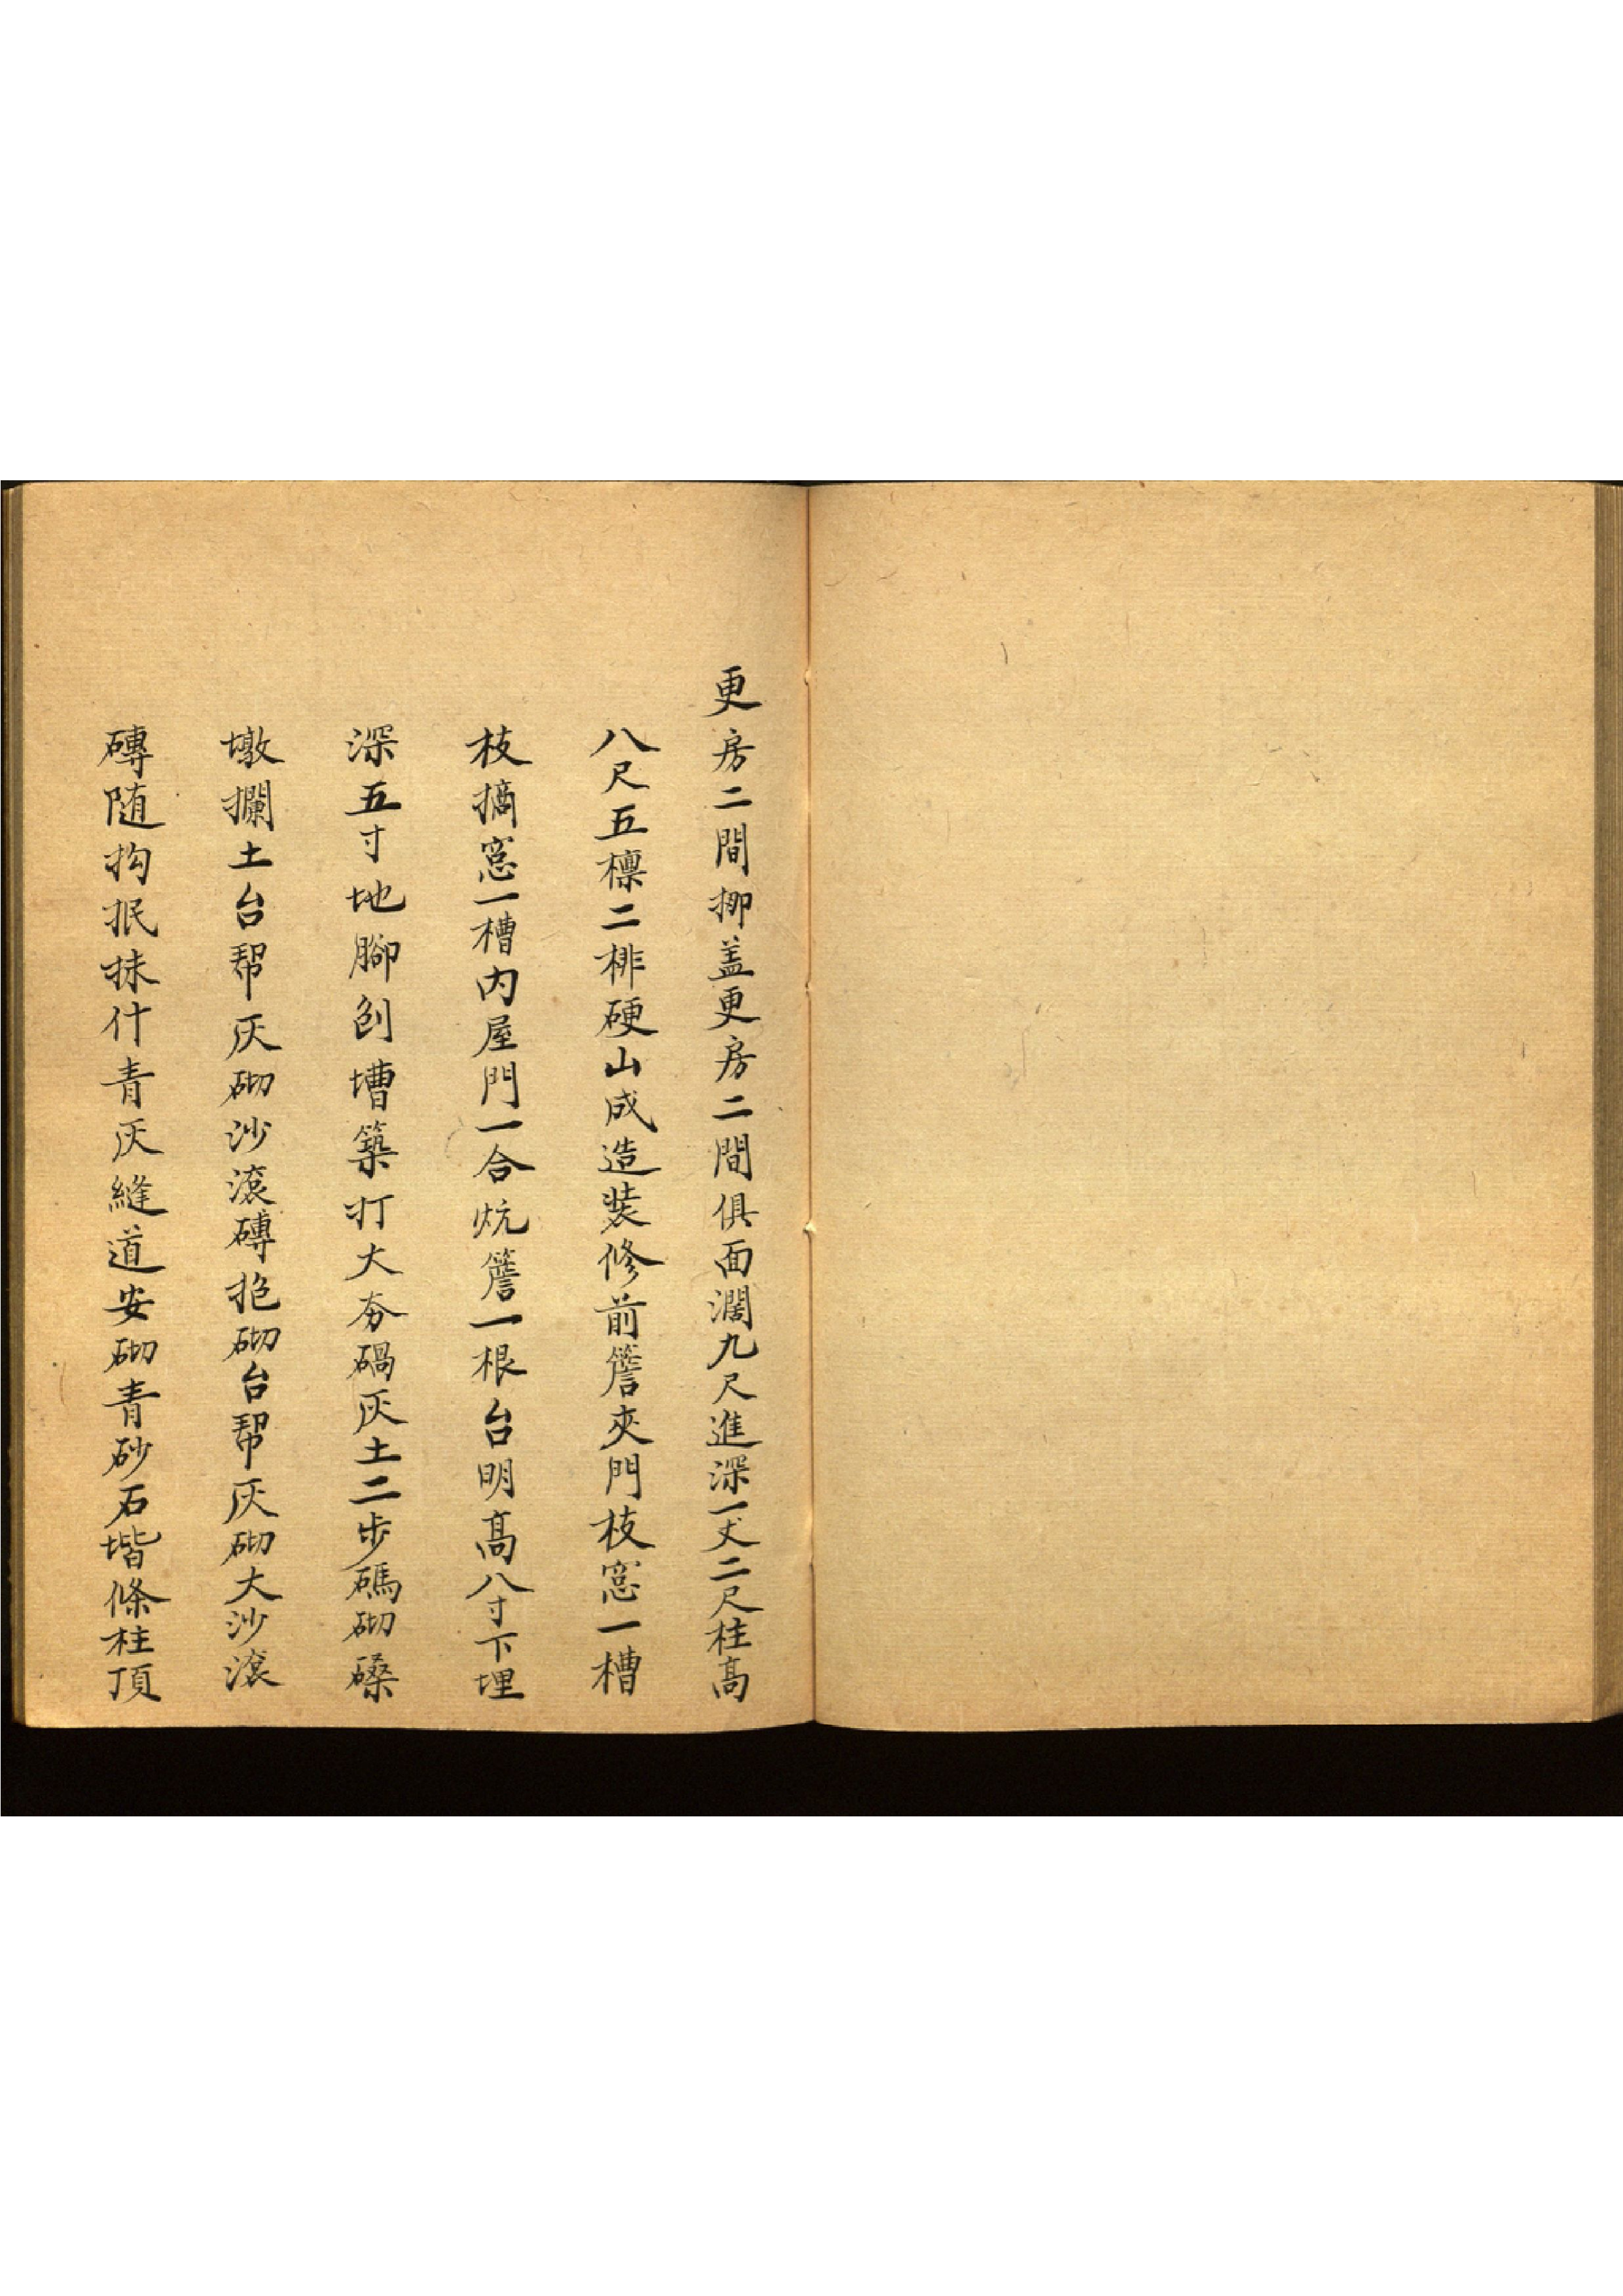 更房二間挪盖更房二間俱面濶九尺進深一丈二尺柱高
八尺五檩二排硬山成造装修前簷夾門枝窓一槽
枝摘窓一槽内屋門一合炕簷一根台明高八寸下埋
深五寸地腳刨槽築打大夯碢灰土二步碼砌磉
墩攔土台帮灰砌沙滾磚抱砌台帮灰砌大沙滾
磚随拘抿抹什青灰縫道安砌青砂石堦條柱頂